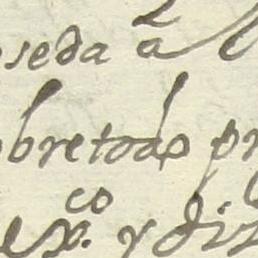 seda â
bretodo pr
ex.co y diz